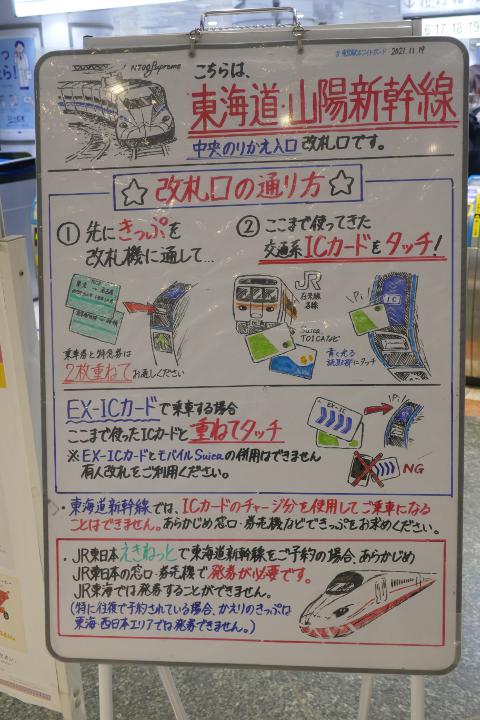 N700 Supreme
2021.11.19
こちらは、
東海道・山陽新幹線
中央のりかえ入口 改札口です。
☆ 改札口の通り方 ☆
① 先にきっぷを
改札機に通して…
乗車券と特急券は
2枚重ねてお通しください
② ここまで使ってきた
交通系ICカードをタッチ!
JR
在来線
各線
Suica
TOICAなど
IC
Pi
青く光る
読取部にタッチ
EX-ICカードで乗車する場合
ここまで使ったICカードと重ねてタッチ
※EX-ICカードとモバイルSuicaの併用はできません
有人改札をご利用ください。
EX-IC
Pi
NG
・東海道新幹線では、ICカードのチャージ分を使用してご乗車になる
ことはできません。あらかじめ窓口・券売機などできっぷをお求めください。
・JR東日本えきねっとで東海道新幹線をご予約の場合、あらかじめ
JR東日本の窓口・券売機で発券が必要です。
JR東海では発券することができません。
(特に往復で予約されている場合、かえりのきっぷは
東海・西日本エリアでは発券できません。)